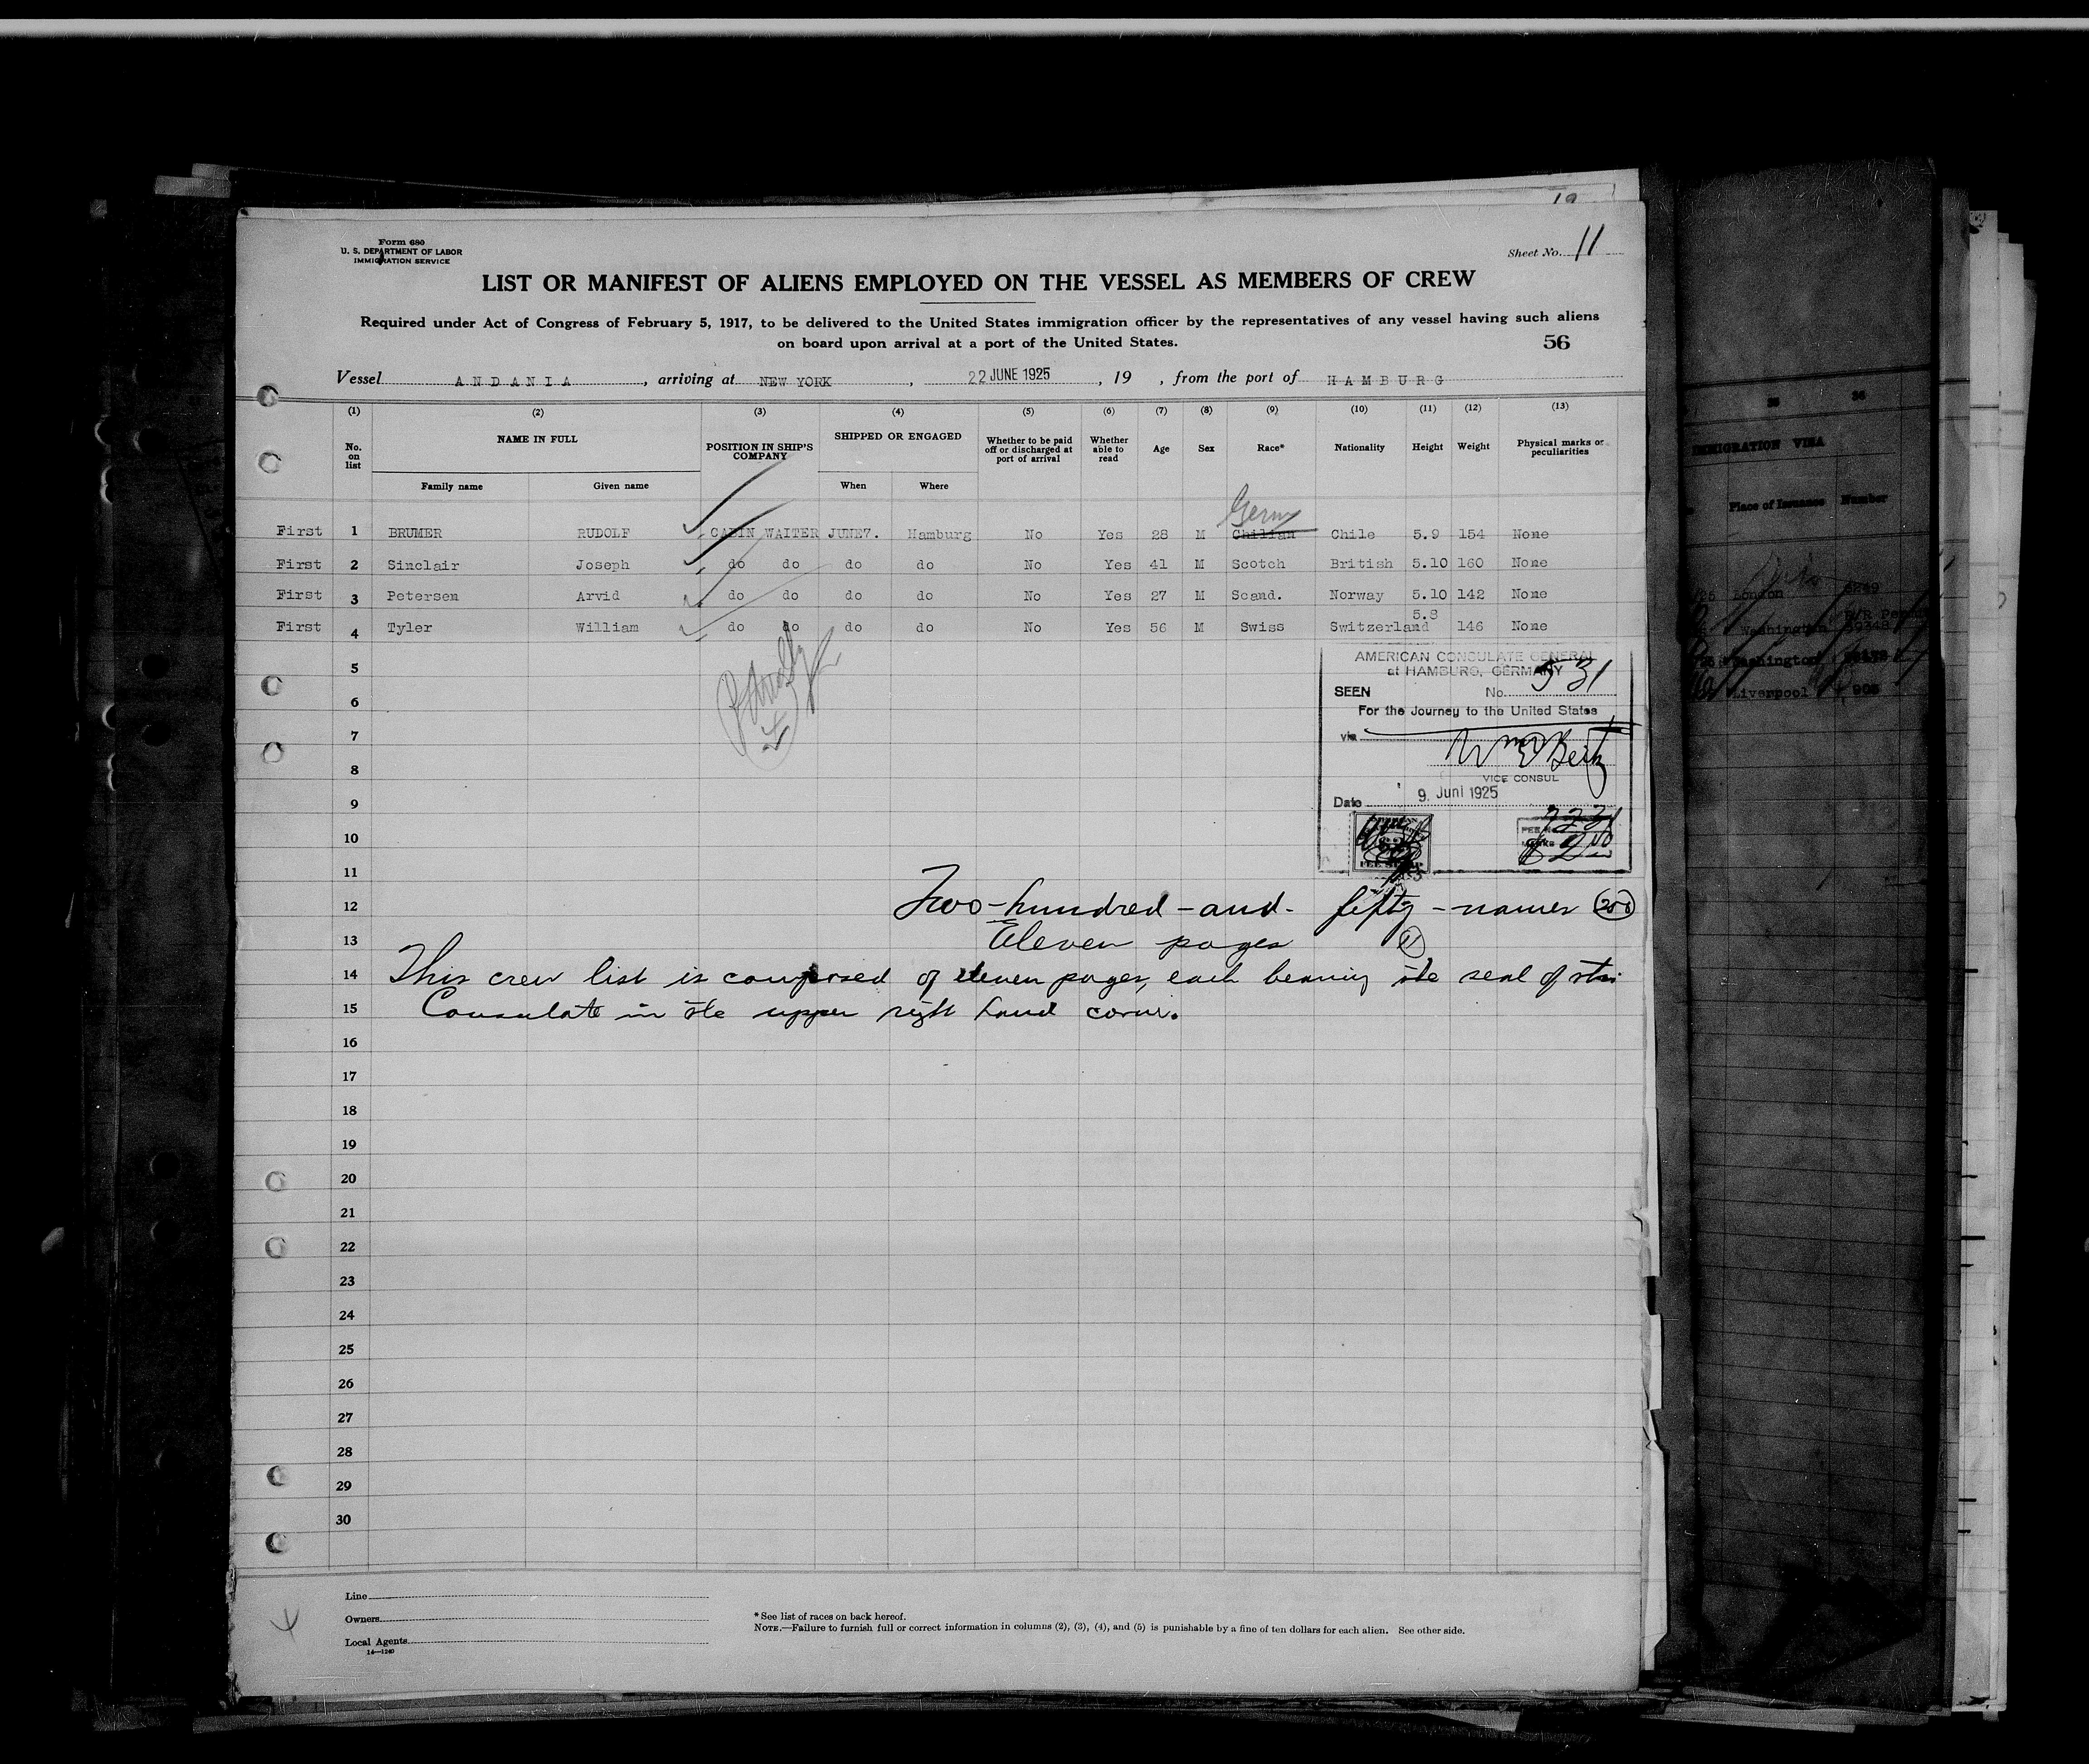 Form 680
U. S. DEPARTMENT OF LABOR
IMMIGRATION SERVICE
Sheet No. 11
LIST OR MANIFEST OF ALIENS EMPLOYED ON THE VESSEL AS MEMBERS OF CREW
Required under Act of Congress of February 5, 1917, to be delivered to the United States immigration officer by the representatives of any vessel having such aliens
on board upon arrival at a port of the United States.
56
Vessel ANDANIA, arriving at NEW YORK, 22 JUNE 1925, 19 , from the port of HAMBURG
(1) (2) (3) (4) (5) (6) (7) (8) (9) (10) (11) (12) (13)
No. on list NAME IN FULL POSITION IN SHIP'S COMPANY SHIPPED OR ENGAGED Whether to be paid off or discharged at port of arrival Whether able to read Age Sex Race* Nationality Height Weight Physical marks or peculiarities
Family name Given name When Where
Germ
First 1 BRUMER RUDOLF CABIN WAITER JUNE7. Hamburg No Yes 28 M Chilian Chile 5.9 154 None
First 2 Sinclair Joseph do do do do No Yes 41 M Scotch British 5.10 160 None
First 3 Petersen Arvid do do do do No Yes 27 M Scand. Norway 5.10 142 None
First 4 Tyler William do do do do No Yes 56 M Swiss Switzerland 5.8 146 None
5
6
7
8
9
10
11
12
13
14
15
16
17
18
19
20
21
22
23
24
25
26
27
28
29
30
AMERICAN CONSULATE GENERAL
at HAMBURG, GERMANY
SEEN No. 531
For the Journey to the United States
via
VICE CONSUL
Date 9. Juni 1925
Two-hundred-and-fifty-names
Eleven pages
This crew list is composed of eleven pages, each bearing the seal of this
Consulate in the upper right hand corner.
Line
Owners
Local Agents
14—1240
* See list of races on back hereof.
NOTE.—Failure to furnish full or correct information in columns (2), (3), (4), and (5) is punishable by a fine of ten dollars for each alien. See other side.
IMMIGRATION VISA
Place of Issuance Number
London
Washington
Washington
Liverpool